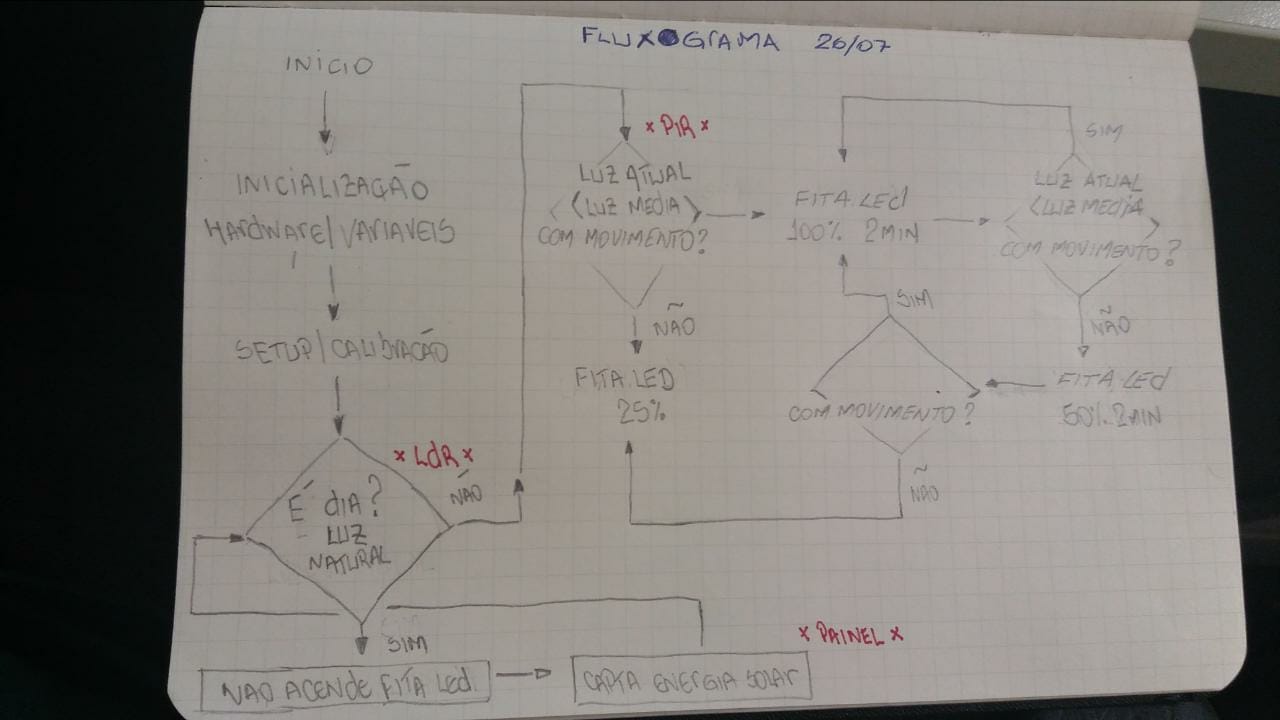 FLUXOGRAMA 26/07
INÍCIO
INICIALIZAÇÃO
HARDWARE/VARIAVEIS
SETUP/CALIBRAÇÃO
* LdR *
É dIA?
LUZ
NATURAL
NÃO
SIM
NAO ACENDE FITA Led.
CAPTA ENERGIA SOLAR
* PAINEL *
* PIR *
LUZ ATUAL
(LUZ MEDIA)
COM MOVIMENTO?
NÃO
FITA LED
25%
FITA LEd
100% 2MIN
SIM
LUZ ATUAL
(LUZ MEdIA
COM MOVIMENTO?
NÃO
FITA LEd
50% 2MIN
SIM
COM MOVIMENTO?
NÃO